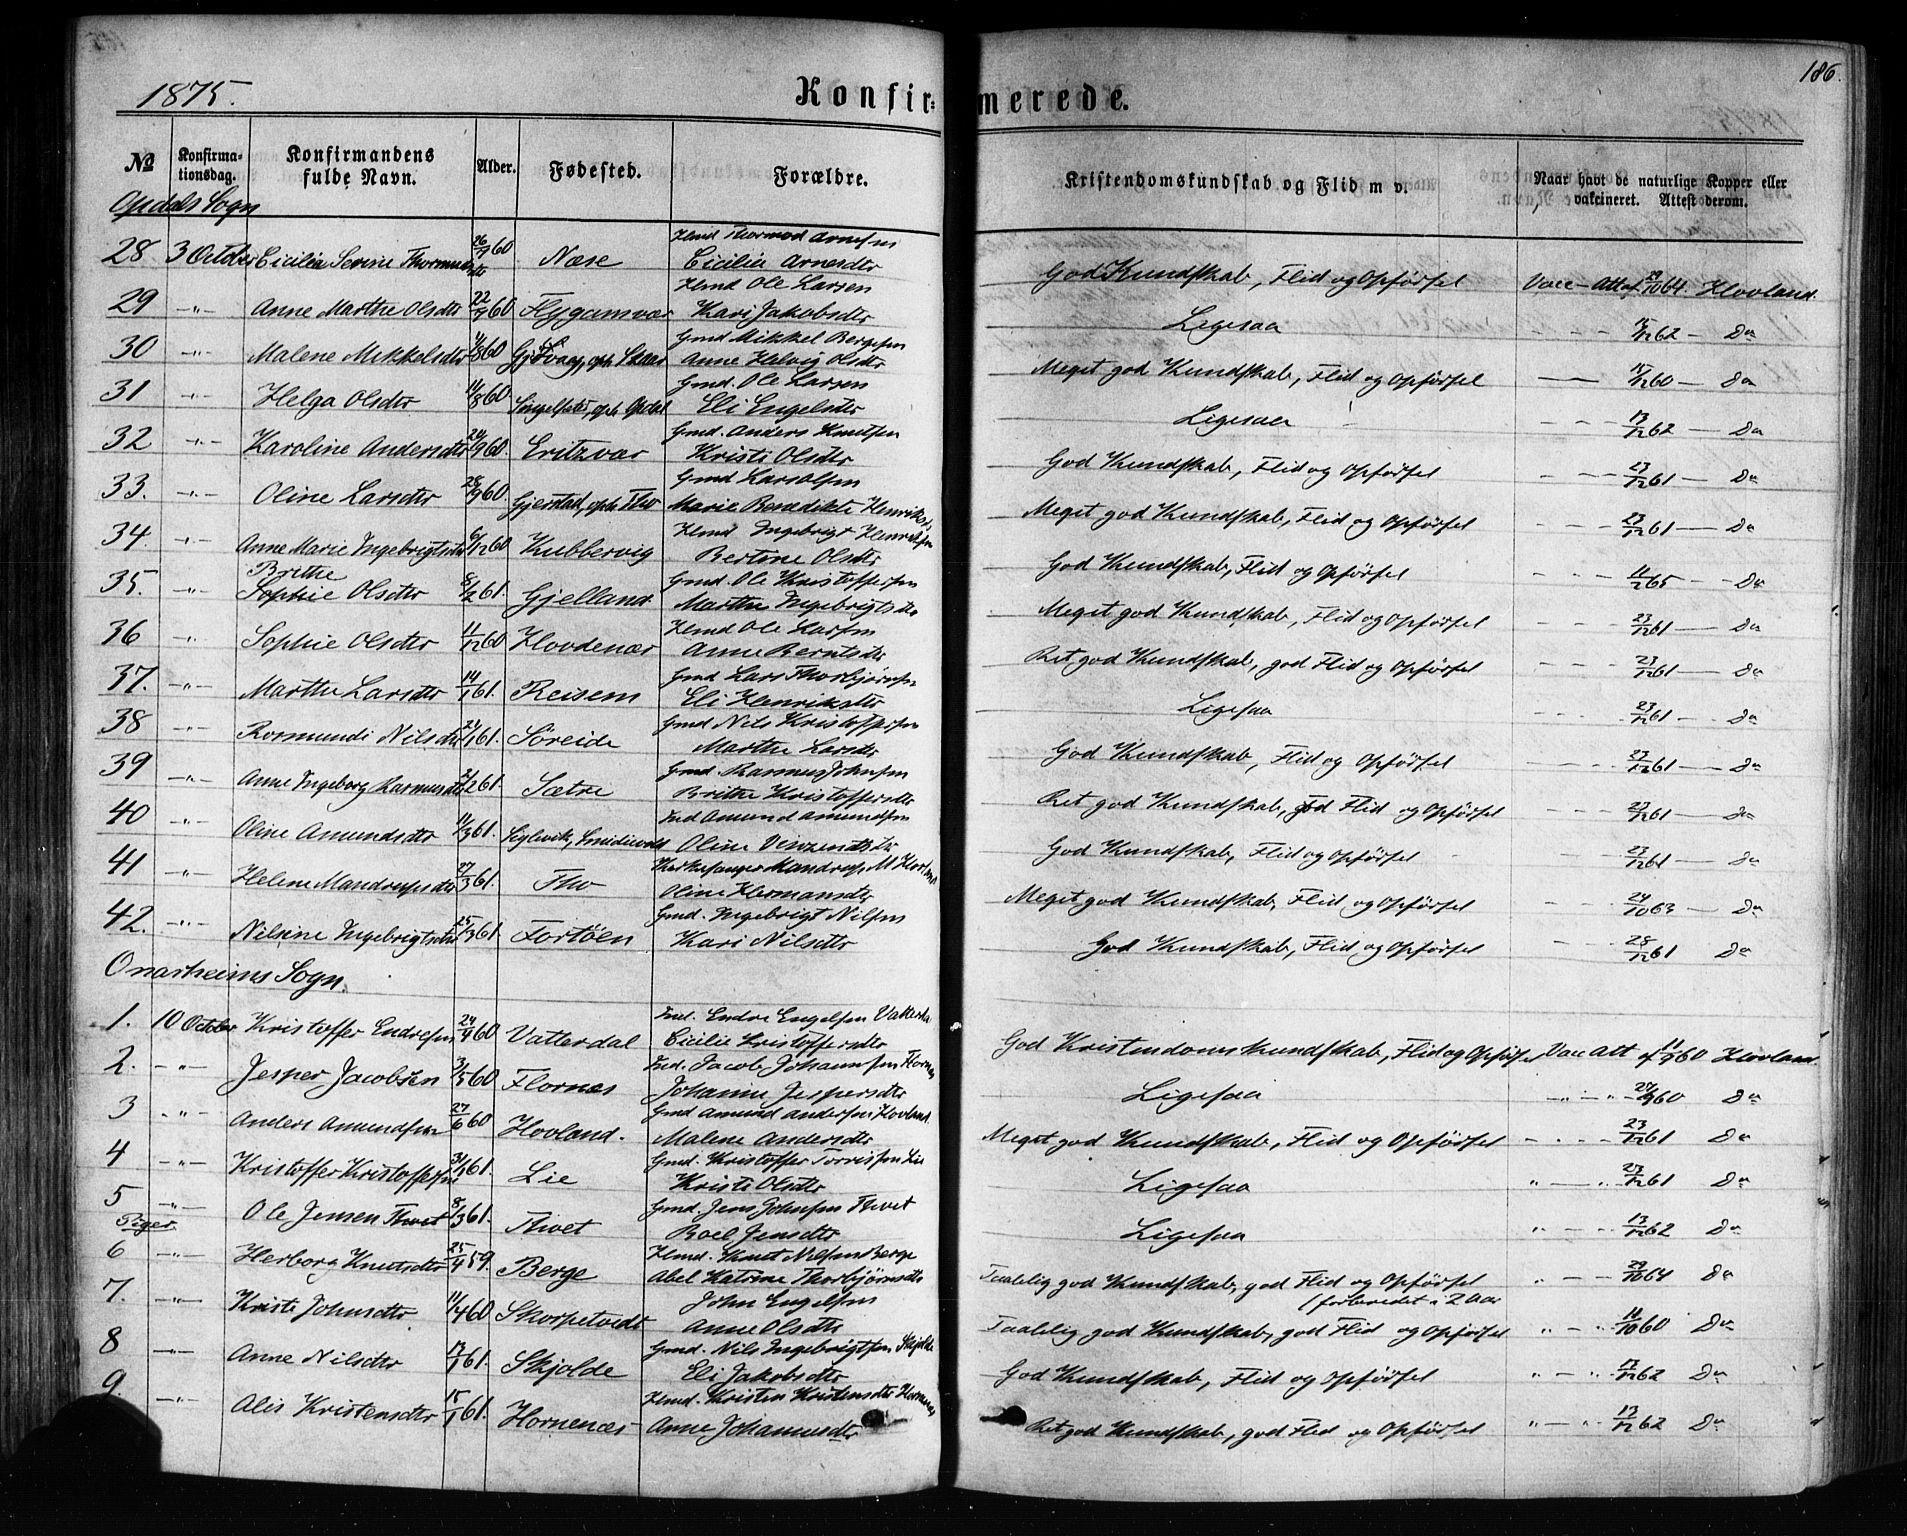 1875.
Konfirmerede.
186.
№
Konfirma-
tionsdag.
Konfirmandens
fulde Navn.
Alder.
Fødested.
Forældre.
Kristendomskundskab og Flid m v.
Naar havt de naturlige Kopper eller
vakcineret. Attest derom.
Opdals Sogn
Hmd Thormod Arnesen
28 3 October Cicilia Severine 26/9 60 Næse Cicilia Arnesdtr God Kundskab, Flid og Opførsel Vacc Att af 29/10 64. Hovland.
Hmd Ole Larsen
29 -"- Anne Marthe Olsdtr 22/9 60 Flygansvær Kari Jakobsdtr Ligesaa - - - 62 - Do
Gmd Mikkel Bergesen
30 -"- Malene Mikkelsdtr 60 Anne Helvig Olsdtr Meget god Kundskab, Flid og Opførsel 60 - Do
Gmd. Ole Larsen
31 -"- Helga Olsdtr 14/8 60 Eli Engelsdtr Ligesaa 13/12 62 - Do
Gmd. Anders Knutsen
32 -"- Karoline Andersdtr 24/9 60. Eritzvær Kristi Olsdtr God Kundskab, Flid og Opførsel - - - 23/12 61 - Do
Gmd Lars Olsen
33. -"- Oline Larsdtr 28/9 60. Gjerstad, Marie Benedikte Henriksd Meget god Kundskab, Flid og Opførsel - - - 23/12 61 - Do
Hmd Ingebrigt Henriksen
34. -"- Anne Marie Ingebrigtsdtr 6/12 60 Kubbervig Bertine Olsdtr God Kundskab, Flid og Opførsel - - - 65 - Do
Brithe Gmd. Ole Kristoffersen
35. -"- Sophie Olsdtr 8/2 61. Gjelland Marthe Ingebrigtsdtr Meget god Kundskab, Flid og Opførsel - - - 23/12 61 - Do
Hmd Ole Larsen
36 -"- Sophie Olsdtr 11/12 60 Hovdenær Anne Berntsdtr Ret god Kundskab, god Flid og Opførsel - - - 23/12 61 - Do
Gmd Lars Thorbjørnsen
37. -"- Marthe Larsdtr 14/1 61. Reisem Eli Henriksdtr Ligesaa 23/12 61 - Do
Gmd Nils Kristoffersen
38 -"- Rosmundi Nilsdtr 61. Søreide Marthe Larsdtr God Kundskab, Flid og Opførsel - - - 23/12 61 - Do
Gmd. Rasmus Johnsen
39 -"- Anne Ingeborg Rasmusdtr 61. Sætre Brithe Kristoffersdtr Ret god Kundskab, god Flid og Opførsel - - - 23/12 61 - Do
Ind Amund Amundsen
40 -"- Oline Amundsdtr 11/3 61. Oline Vinzentsdtr God Kundskab, Flid og Opførsel - - - 23/12 61 - Do
Kirkesanger Mandrup M Hovland
41 -"- Helene Mandrupsdtr 27/3 61. Tho Oline Hermansdtr Meget god Kundskab, Flid og Opførsel - - - 24/10 63 - Do
Gmd. Ingebrigt Nilsen
42. -"- Nilsine Ingebrigtsdtr 25/3 61. Fortøen Kari Nilsdtr God Kundskab, Flid og Opførsel - - - 28/12 61 Do
Onarheims Sogn.
Ind. Endre Engelsen
1. 10 October Kristoffer Endresen 24/4 60 Vatterdal Cicilie Kristoffersdtr God Kristendomskundskab, Flid og Opførsel Vacc Att af 11/9 60 Hovland.
Ind. Jacob Johannesen Flornæs
2. -"- Jesper Jacobsen 3/5 60 Flornæs Johanne Jespersdtr Ligesaa 60 Do
Gmd Amund Andersen Hovland.
3 -"- Anders Amundsen 27/6 60 Hovland. Malene Andersdtr Meget god Kundskab, Flid og Opførsel - 23/12 61 Do
Gmd. Kristoffer Torrissen Lie
4 -"- Kristoffer Kristoffersen 31/1 61. Lie Kristi Olsdtr Ligesaa " - " 23/12 61 Do
Gmd. Jens Johnsen Thvet
5 -"- Ole Jensen Thvet 8/3 61. Thvet Roel Jensdtr Ligesaa " - " 13/12 62 Do
Piger.
Hmd. Knut Nilsen Berge
6 -"- Herborg Knutsdtr 25/4 59. Berge Abel Katrine Thorbjørnsdtr Taalelig god Kundskab, god Flid og Opførsel " - " 29/10 64 Do
(forberedet i 2 Aar
John Engelsen
7. -"- Kristi Johnsdtr 11/4 60 Skorpetvedt Anne Olsdtr Taalelig god Kundskab, god Flid og Opførsel " - " 11/10 60 Do
Gmd. Nils Ingebrigtsen Skjolde
8 -"- Anne Nilsdtr 61. Skjolde Eli Jakobsdtr God Kundskab, Flid og Opførsel " - " 62 Do
Hmd. Kristen Kristensen Hornenæs
9. -"- Alis Kristensdtr 15/1 61. Hornenæs Anne Johannesdtr Ret god Kundskab, god Flid og Opførsel " - " 13/12 62 Do